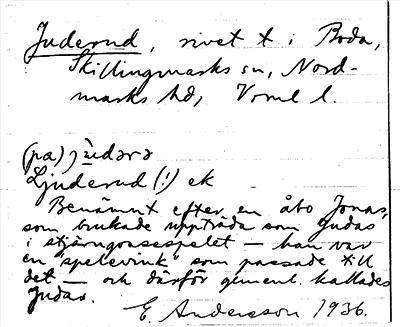 Juderud, rivet t. i Boda,
Skillingmarks sn, Nord-
marks hd, Vrml l.
(pa) jùdərə
Ljuderud (!) ek
Benämnt efter en åbo Jonas,
som brukade uppträda som Judas
i stjärngossespelet — han var
en "spelevink" som passade till
det — och därför gement. kallades
Judas.
E. Andersson 1936.